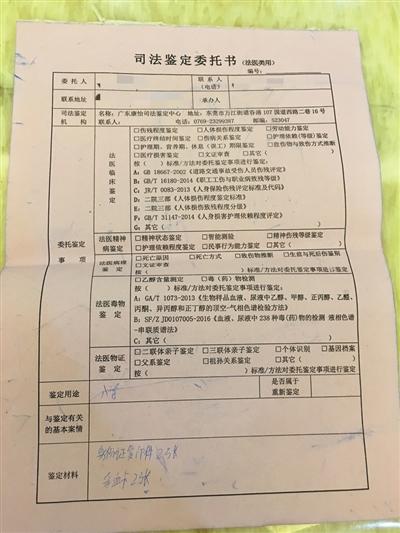 司法鉴定委托书（法医类用）
编号：
委托人
联系人（电话）
联系地址
承办人
司法鉴定机构
名称：广东康怡司法鉴定中心 地址：东莞市万江街道谷涌 107 国道西路二巷 16 号
联系人： 电话：0769-23299387 邮编：523047
委托鉴定事项
法医临床鉴定
□伤残程度鉴定 □人体损伤程度鉴定 □劳动能力鉴定
□医疗终结时间鉴定 □伤病关系鉴定 □护理依赖(等级)鉴定
□护理期、营养期、休息（误工）期限鉴定 □致伤物与致伤方式推断
□医疗损害鉴定 □文证审查 □其它（ ）
按（ ）标准/方法对委托鉴定事项进行鉴定：
A: GB 18667-2002《道路交通事故受伤人员伤残评定》
B: GB/T 16180-2014《职工工伤与职业病致残等级》
C: JR/T 0083-2013《人身保险伤残评定标准及代码》
D: 二院三部《人体损伤程度鉴定标准》
E: 二院三部《人体损伤致残程度分级》
F: GB/T 31147-2014《人身损害护理依赖程度评定》
G: 其它（ ）
法医精神病鉴定
□精神状态鉴定 □智能测验 □精神伤残等级鉴定
□护理依赖程度鉴定 □民事行为能力鉴定 □其它（ ）
法医病理鉴定
□死亡原因 □死亡方式 □致伤物推断 □生前与死后伤鉴别
□文证审查
按（ ）标准/方法对委托鉴定事项进行鉴定
法医毒物鉴定
□乙醇含量测定 □毒（药）物检测
按（ ）标准/方法对委托鉴定事项进行鉴定：
A: GA/T 1073-2013《生物样品血液、尿液中乙醇、甲醇、正丙醇、乙醛、丙酮、异丙醇和正丁醇的顶空-气相色谱检验方法》
B: SF/Z JD0107005-2016《血液、尿液中 238 种毒(药)物的检测 液相色谱-串联质谱法》
C: 其它（ ）
法医物证鉴定
□二联体亲子鉴定 □三联体亲子鉴定 □个体识别 □基因档案
□父系鉴定 □祖孙关系鉴定 □其它（ ）
按（ ）标准/方法对委托鉴定事项进行鉴定
鉴定用途
是否属于重新鉴定
与鉴定有关的基本案情
鉴定材料
身份证复印件
血卡2张